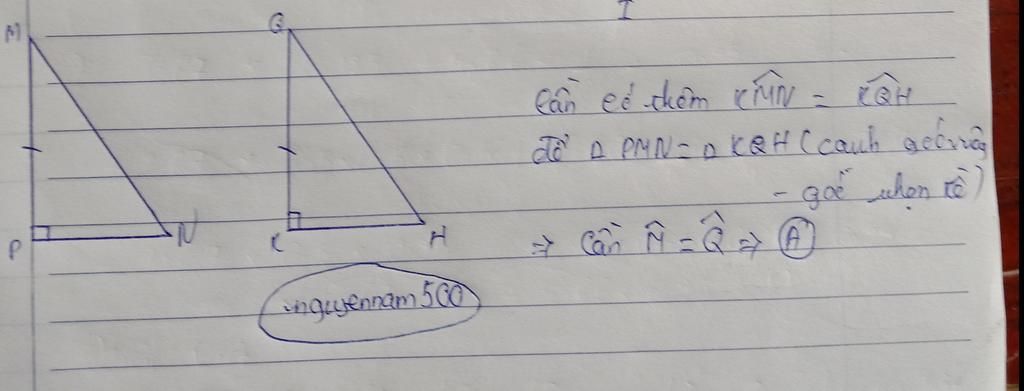 M
Q
I
Cần có thêm KM̂N = KQ̂H
để Δ PMN = Δ KQH (cạnh góc vuông
- góc nhọn kề)
P
N
K
H
=> Cần M̂ = Q̂ => A
nguyennam500